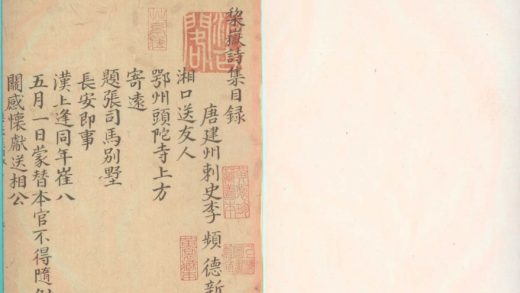 黎嶽詩集目録
唐建州刺史李頻德新
湘口送友人
鄂州頭陀寺上方
寄遠
題張司馬別墅
長安即事
漢上逢同年崔八
五月一日蒙替本官不得隨
關感懷獻送相公